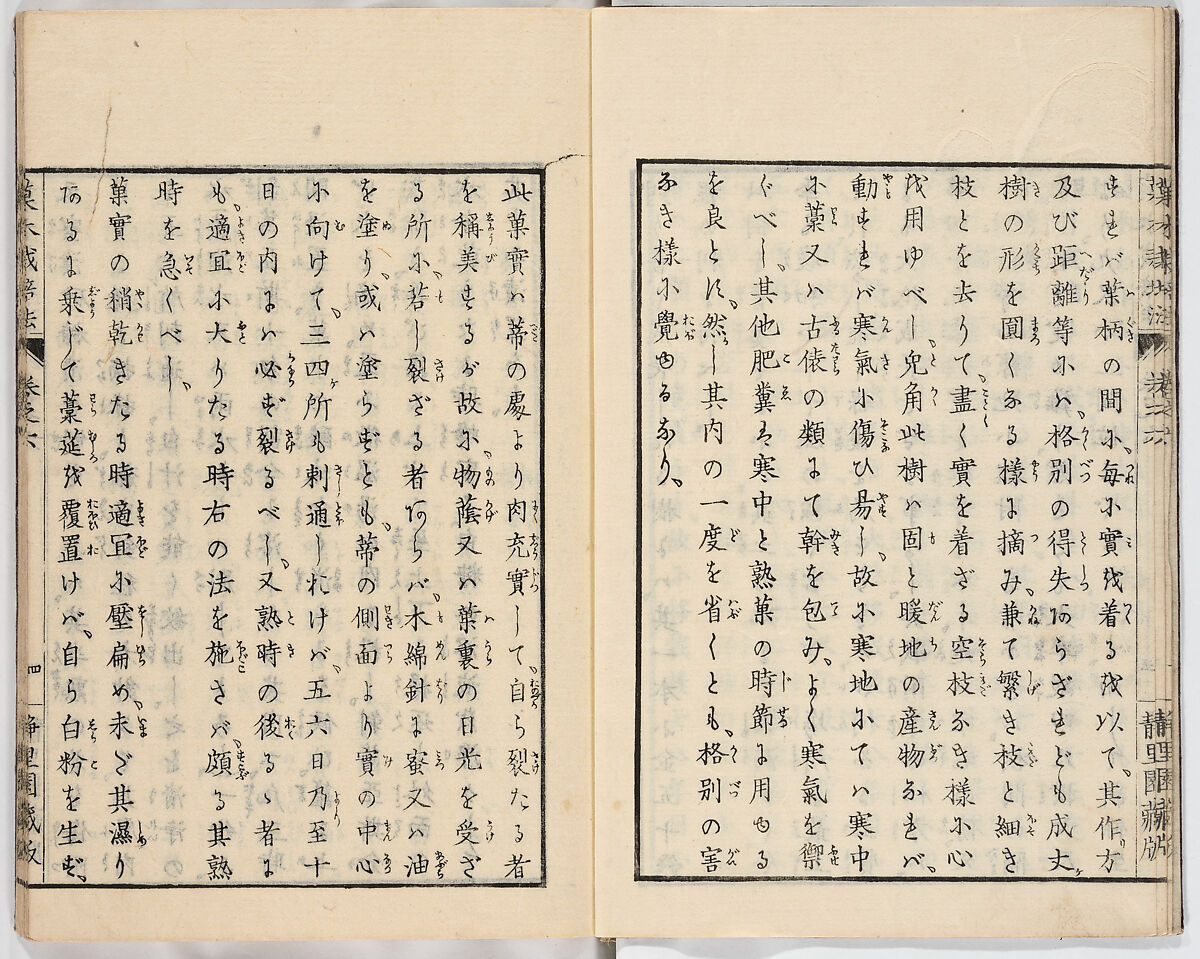 すれバ葉柄の間に、毎に實を着るを以て、其作方
及び距離等にハ、格別の得失あらざれども成丈
樹の形を圓くなる樣に摘み、兼て繁き枝と細き
枝とを去りて、盡く實を着ざる空枝なき樣に心
を用ゆべし、兎角此樹ハ固と暖地の産物なれバ、
動すれバ寒氣に傷ひ易し、故に寒地にてハ寒中
に藁又ハ古俵の類にて幹を包み、よく寒氣を禦
ぐべし、其他肥糞ハ寒中と熟菓の時節に用ゆる
を良とす、然し其内の一度を省くとも、格別の害
なき樣に覺ゆるなり、
此菓實ハ蔕の處より肉充實して、自ら裂たる者
を稱美するが故に、物蔭又ハ葉裏の日光を受ざ
る所に、若し裂ざる者あらバ、木綿針に蜜又ハ油
を塗り、或ハ塗らずとも、蔕の側面より實の中心
に向けて、三四ケ所も刺通しおけバ、五六日乃至十
日の内にハ必ず裂るべし、又熟時の後るゝ者に
も、適宜に大りたる時右の法を施さバ、頗る其熟
時を急くべし、
菓實の稍乾きたる時適宜に壓扁め、未ざ其濕り
あるに乗じて藁莚を覆置けバ、自ら白粉を生ず、
菓木栽培法
卷之六
四
靜里園藏版
靜里園藏版